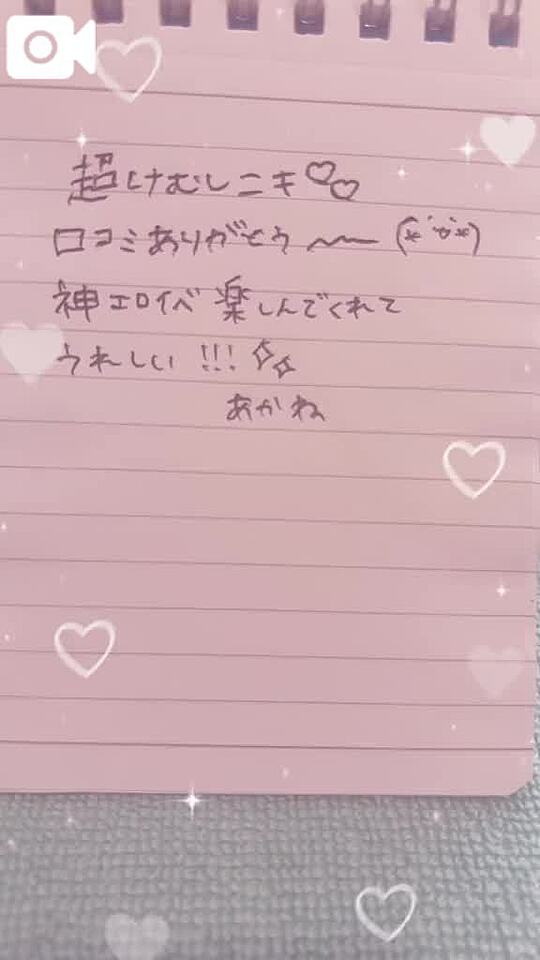 超けむしニキ♡♡
口コミありがとう〜〜 (*¨̮*)
神エロイベ楽しんでくれて
うれしい!!!✧✧
あかね